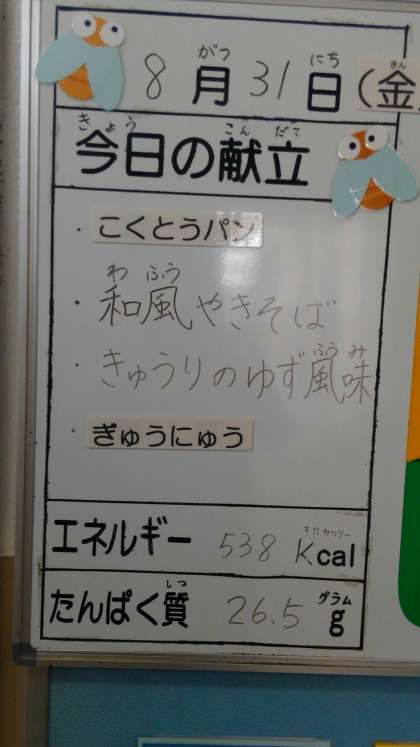 8月31日(金
がつ にち きん
今日の献立
きょう こん だて
・こくとうパン
・和風やきそば
わ ふう
・きゅうりのゆず風味
ふう み
・ぎゅうにゅう
エネルギー 538 Kcal
キロカロリー
たんぱく質 26.5 g
しつ グラム